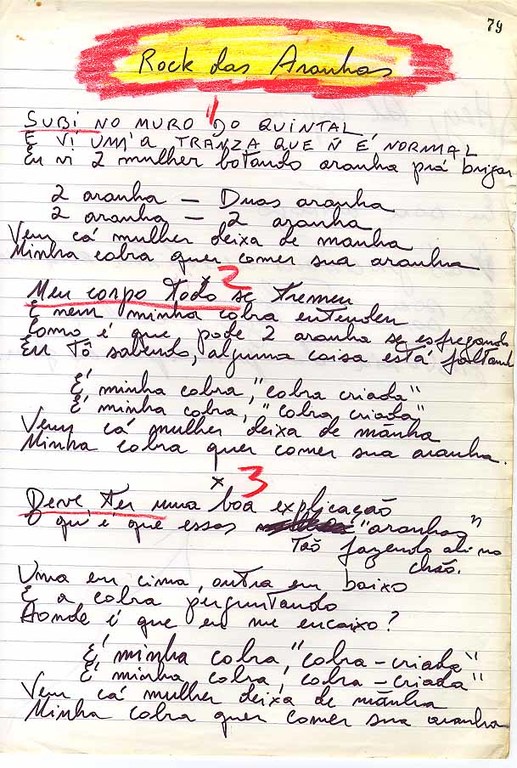 79
Rock das Aranhas
1
SUBi NO MURO DO QUINTAL
E Vi UMA TRANZA QUE Ñ É NORMAL
Eu vi 2 mulher botando aranha prá brigar
2 aranha — Duas aranha
2 aranha — 2 aranha
Vem cá mulher deixa de manha
Minha cobra quer comer sua aranha
x 2
Meu corpo todo se tremeu
E nem minha cobra entendeu
Como é que pode 2 aranha se esfregando
Eu Tô sabendo, alguma coisa está faltand
É minha cobra, "cobra criada"
É minha cobra, "cobra criada"
Vem cá mulher deixa de manha
Minha cobra quer comer sua aranha.
x 3
Deve ter uma boa explicação
O qui é que essas "aranhas"
Tão fazendo ali no
chão.
Uma em cima, outra em baixo
E a cobra perguntando
Aonde é que eu me encaixo?
É minha cobra, "cobra-criada"
É minha cobra, cobra-criada"
Vem cá mulher deixa de manha
Minha cobra quer comer sua aranha